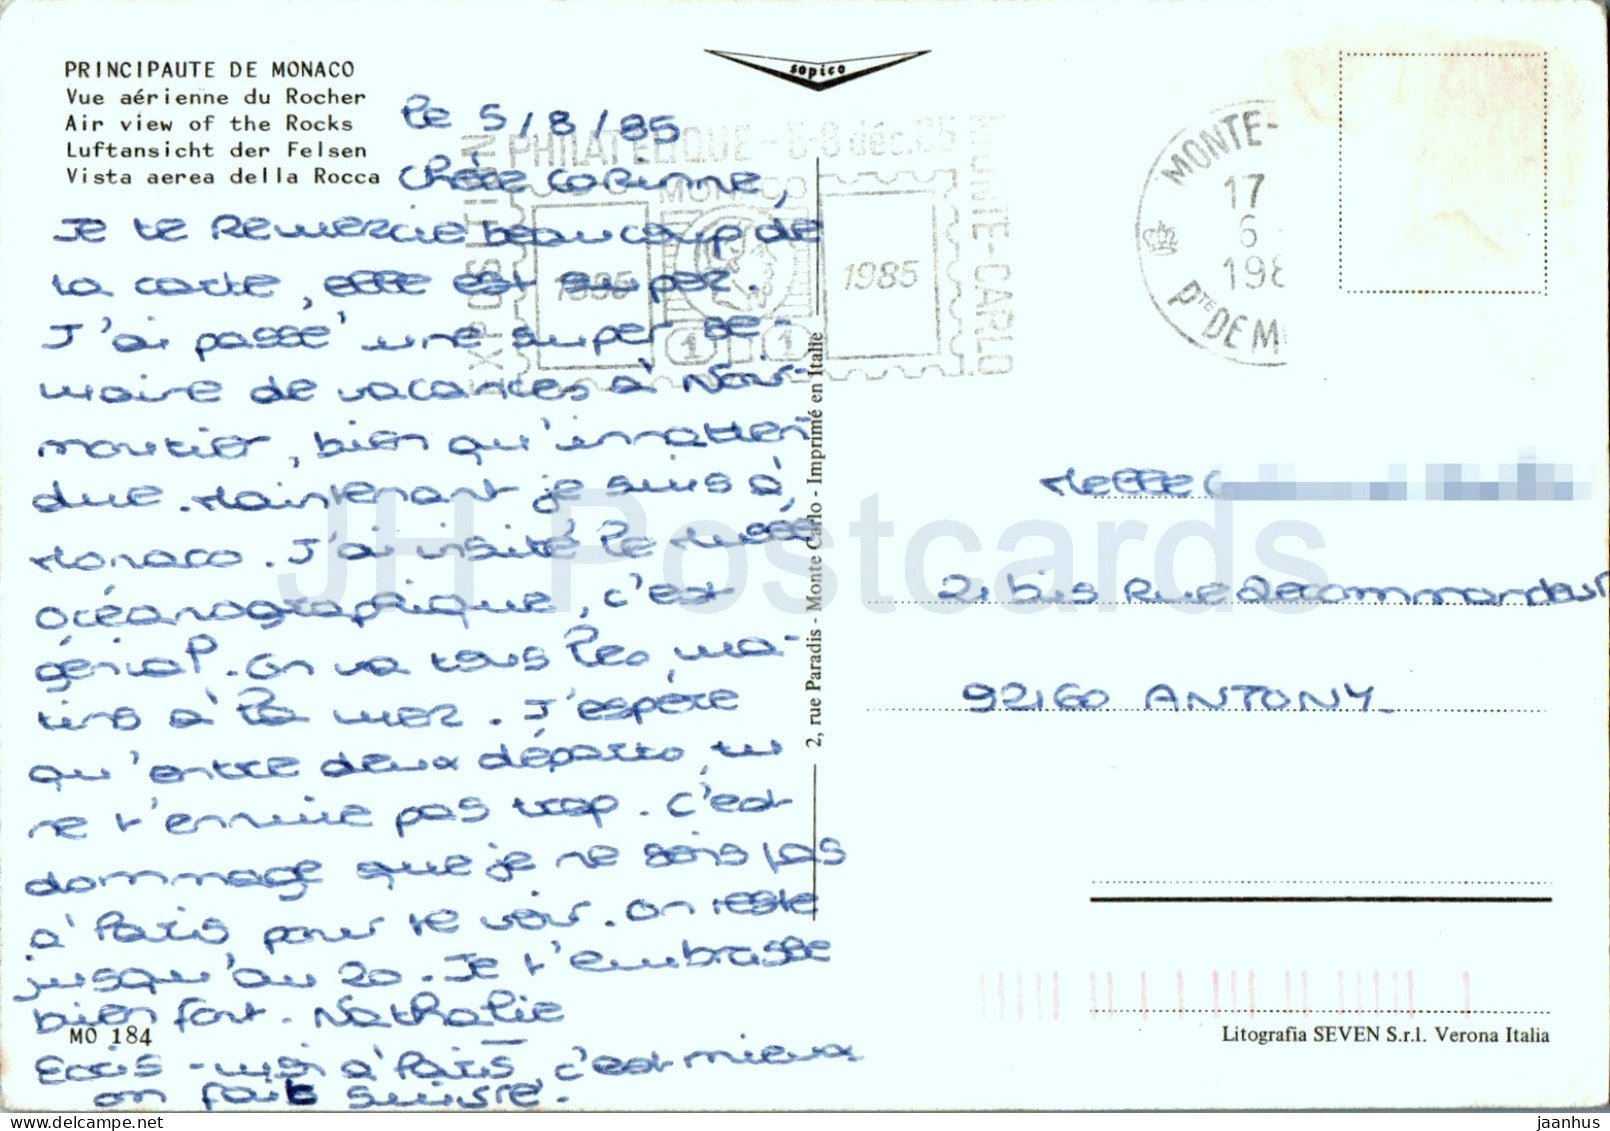 PRINCIPAUTE DE MONACO
Vue aérienne du Rocher
Air view of the Rocks
Luftansicht der Felsen
Vista aerea della Rocca
sopico
le 5/8/85
Chère Corinne,
Je te remercie beaucoup de
la carte, elle est super.
J'ai passé une super se-
maine de vacances à Noir
moutier, bien qu'innatten
due. Maintenant je suis à
Monaco. J'ai visité le musée
océanographique, c'est
génial. On va tous les ma-
tins à la mer. J'espère
qu'entre deux départs, tu
ne t'ennuie pas trop. C'est
dommage que je ne sois pas
à Paris pour te voir. On reste
jusqu'au 20. Je t'embrasse
bien fort. Nathalie
MO 184
Ecris-moi à Paris c'est mieux
on fait suivre.
EXPOSITION PHILATELIQUE - 5-8 déc. 85 MONTE-CARLO
MONACO
1885
1985
1 1
MONTE-
17
6
198
Pté DE M
2, rue Paradis - Monte Carlo - Imprimé en Italie
Melle C
21 bis Rue
92160 ANTONY.
Litografia SEVEN S.r.l. Verona Italia
JH Postcards
jaanhus